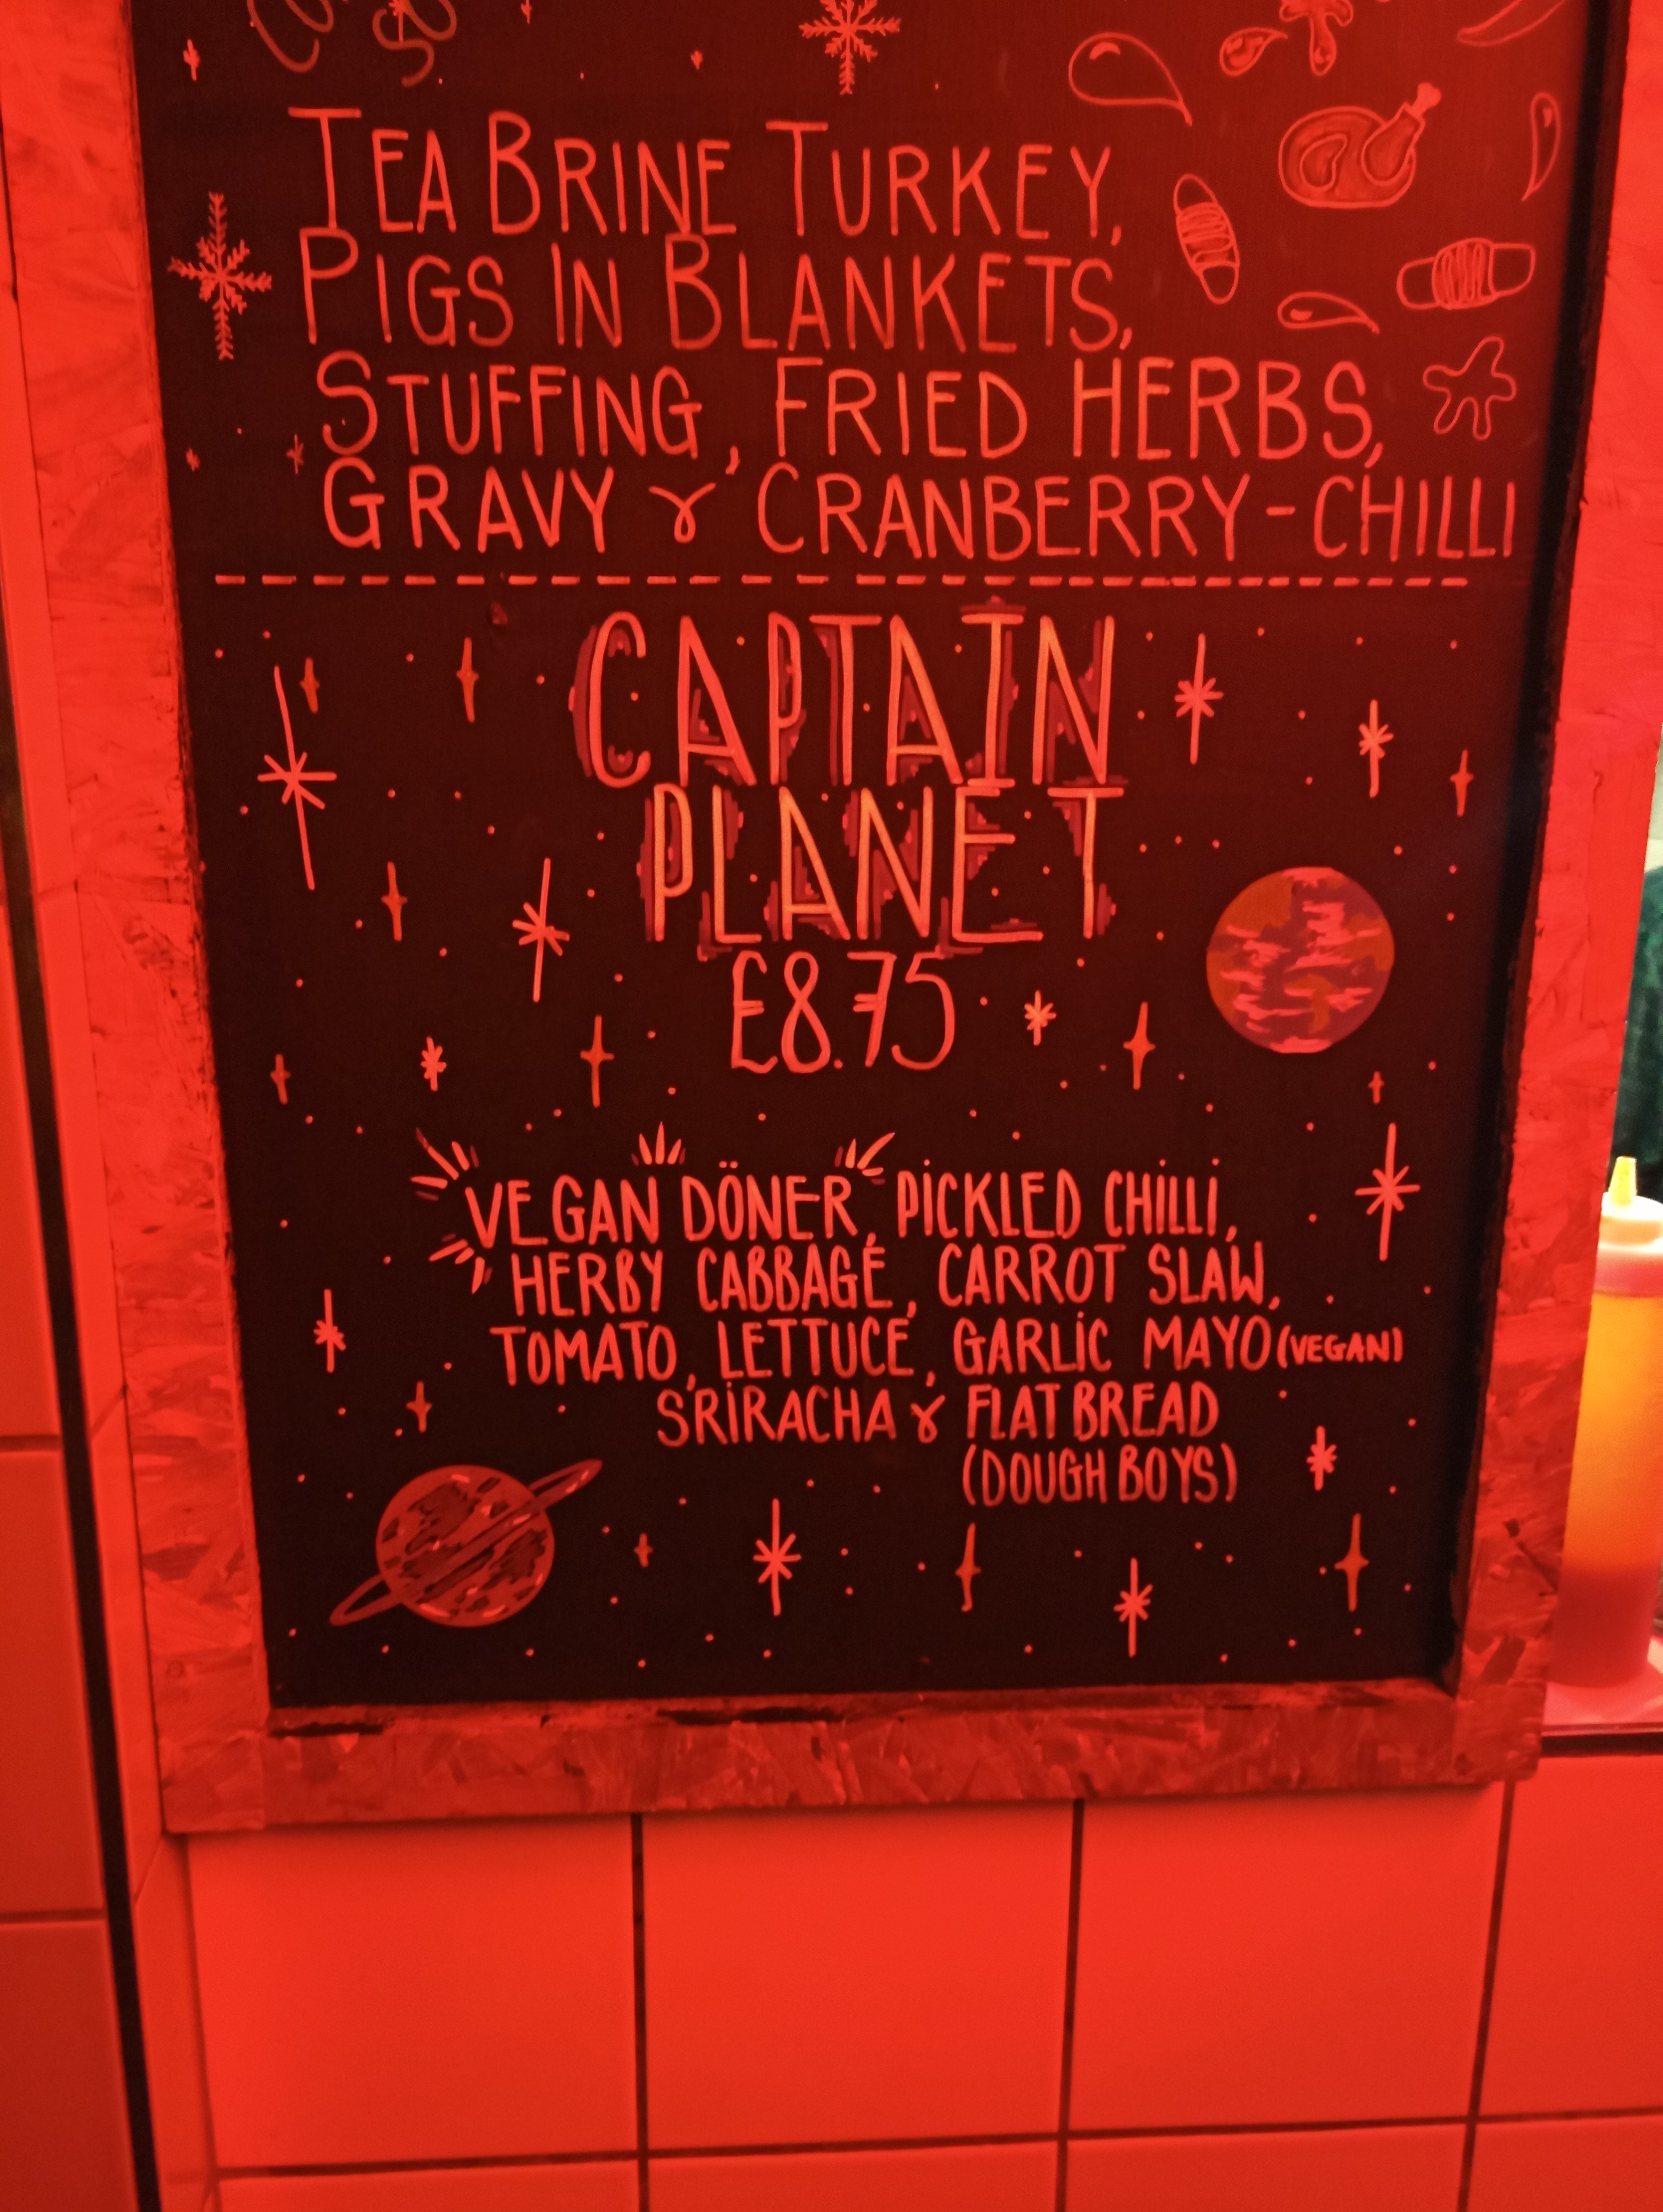 TEA BRINE TURKEY,
PIGS IN BLANKETS,
STUFFING, FRIED HERBS,
GRAVY & CRANBERRY-CHILLI
CAPTAIN
PLANET
£8.75
VEGAN DÖNER, PICKLED CHILLI,
HERBY CABBAGE, CARROT SLAW,
TOMATO, LETTUCE, GARLIC MAYO (VEGAN)
SRIRACHA & FLATBREAD
(DOUGH BOYS)